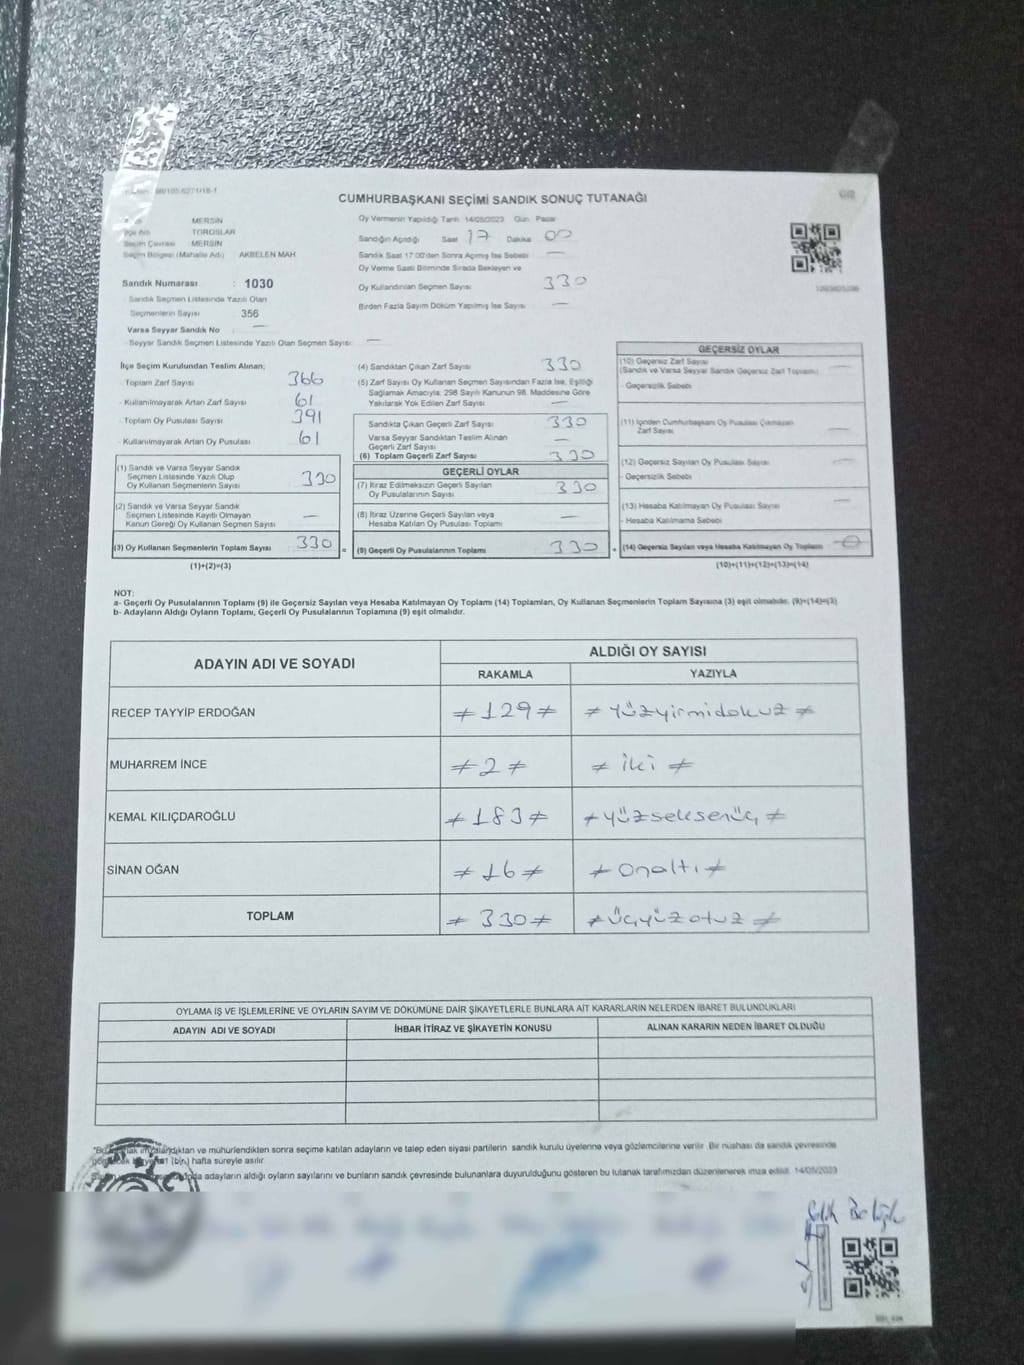 CUMHURBAŞKANI SEÇİMİ SANDIK SONUÇ TUTANAĞI
MERSİN
TOROSLAR
Seçim Çevresi : MERSİN
Seçim Bölgesi (Mahalle Adı) AKBELEN MAH
Oy Vermenin Yapıldığı Tarih 14/05/2023 Gün Pazar
Sandığın Açıldığı Saat 17 Dakika 00
Sandık Saat 17:00'den Sonra Açılmış İse Sebebi —
Oy Verme Saati Bitiminde Sırada Bekleyen ve
Oy Kullandırılan Seçmen Sayısı 330
Birden Fazla Sayım Döküm Yapılmış İse Sayısı —
Sandık Numarası : 1030
Sandık Seçmen Listesinde Yazılı Olan
Seçmenlerin Sayısı 356
Varsa Seyyar Sandık No —
Seyyar Sandık Seçmen Listesinde Yazılı Olan Seçmen Sayısı —
İlçe Seçim Kurulundan Teslim Alınan;
- Toplam Zarf Sayısı 366
- Kullanılmayarak Artan Zarf Sayısı 61
- Toplam Oy Pusulası Sayısı 391
- Kullanılmayarak Artan Oy Pusulası 61
(1) Sandık ve Varsa Seyyar Sandık
Seçmen Listesinde Yazılı Olup
Oy Kullanan Seçmenlerin Sayısı 330
(2) Sandık ve Varsa Seyyar Sandık
Seçmen Listesinde Kayıtlı Olmayan
Kanun Gereği Oy Kullanan Seçmen Sayısı —
(3) Oy Kullanan Seçmenlerin Toplam Sayısı 330 =
(1)+(2)=(3)
(4) Sandıktan Çıkan Zarf Sayısı 330
(5) Zarf Sayısı Oy Kullanan Seçmen Sayısından Fazla İse, Eşitliği
Sağlamak Amacıyla; 298 Sayılı Kanunun 98. Maddesine Göre
Yakılarak Yok Edilen Zarf Sayısı —
Sandıkta Çıkan Geçerli Zarf Sayısı 330
Varsa Seyyar Sandıktan Teslim Alınan
Geçerli Zarf Sayısı —
(6) Toplam Geçerli Zarf Sayısı 330
GEÇERLİ OYLAR
(7) İtiraz Edilmeksizin Geçerli Sayılan
Oy Pusulalarının Sayısı 330
(8) İtiraz Üzerine Geçerli Sayılan veya
Hesaba Katılan Oy Pusulası Toplamı —
(9) Geçerli Oy Pusulalarının Toplamı 330 +
GEÇERSİZ OYLAR
(10) Geçersiz Zarf Sayısı
(Sandık ve Varsa Seyyar Sandık Geçersiz Zarf Toplamı) —
- Geçersizlik Sebebi
(11) İçinden Cumhurbaşkanı Oy Pusulası Çıkmayan
Zarf Sayısı —
(12) Geçersiz Sayılan Oy Pusulası Sayısı —
- Geçersizlik Sebebi
(13) Hesaba Katılmayan Oy Pusulası Sayısı —
- Hesaba Katılmama Sebebi
(14) Geçersiz Sayılan veya Hesaba Katılmayan Oy Toplamı 0
(10)+(11)+(12)+(13)=(14)
NOT:
a- Geçerli Oy Pusulalarının Toplamı (9) ile Geçersiz Sayılan veya Hesaba Katılmayan Oy Toplamı (14) Toplamları, Oy Kullanan Seçmenlerin Toplam Sayısına (3) eşit olmalıdır. (9)+(14)=(3)
b- Adayların Aldığı Oyların Toplamı, Geçerli Oy Pusulalarının Toplamına (9) eşit olmalıdır.
ADAYIN ADI VE SOYADI ALDIĞI OY SAYISI
RAKAMLA YAZIYLA
RECEP TAYYİP ERDOĞAN ≠ 129 ≠ ≠ Yüzyirmidokuz ≠
MUHARREM İNCE ≠ 2 ≠ ≠ iki ≠
KEMAL KILIÇDAROĞLU ≠ 183 ≠ ≠ Yüzseksenüç ≠
SİNAN OĞAN ≠ 16 ≠ ≠ Onaltı ≠
TOPLAM ≠ 330 ≠ ≠ üçyüzotuz ≠
OYLAMA İŞ VE İŞLEMLERİNE VE OYLARIN SAYIM VE DÖKÜMÜNE DAİR ŞİKAYETLERLE BUNLARA AİT KARARLARIN NELERDEN İBARET BULUNDUKLARI
ADAYIN ADI VE SOYADI İHBAR İTİRAZ VE ŞİKAYETİN KONUSU ALINAN KARARIN NEDEN İBARET OLDUĞU
ve mühürlendikten sonra seçime katılan adayların ve talep eden siyasi partilerin sandık kurulu üyelerine veya gözlemcilerine verilir. Bir nüshası da sandık çevresinde
(bir) hafta süreyle asılır.
adayların aldığı oyların sayılarını ve bunların sandık çevresinde bulunanlara duyurulduğunu gösteren bu tutanak tarafımızdan düzenlenerek imza edildi. 14/05/2023